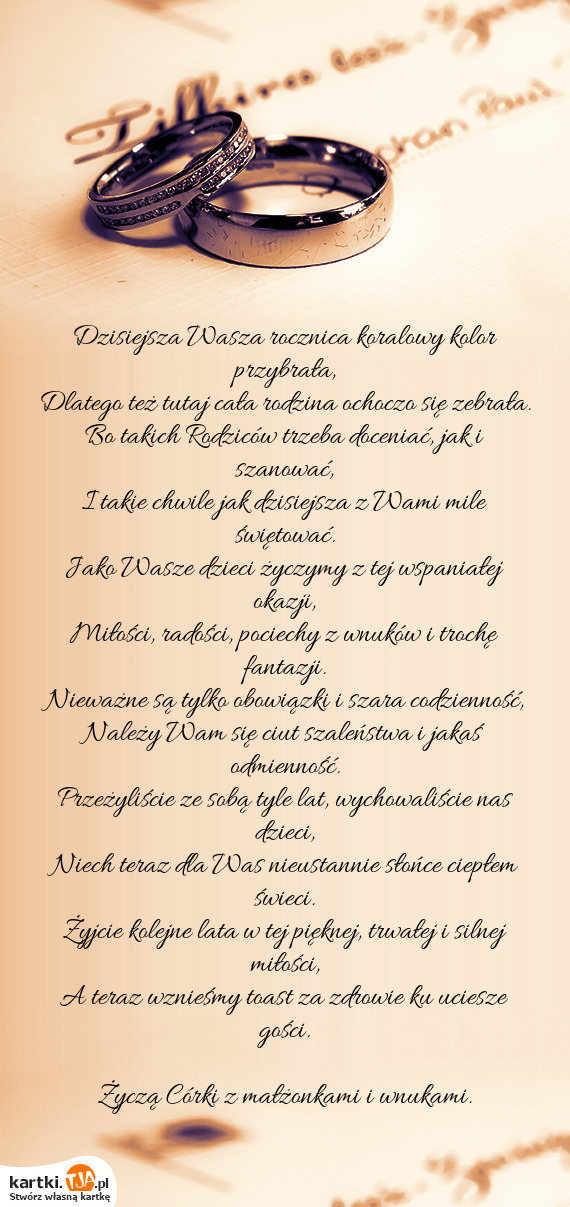 Dzisiejsza Wasza rocznica koralowy kolor
przybrała,
Dlatego też tutaj cała rodzina ochoczo się zebrała.
Bo takich Rodziców trzeba doceniać, jak i
szanować,
I takie chwile jak dzisiejsza z Wami mile
świętować.
Jako Wasze dzieci życzymy z tej wspaniałej
okazji,
Miłości, radości, pociechy z wnuków i trochę
fantazji.
Nieważne są tylko obowiązki i szara codzienność,
Należy Wam się ciut szaleństwa i jakaś
odmienność.
Przeżyliście ze sobą tyle lat, wychowaliście nas
dzieci,
Niech teraz dla Was nieustannie słońce ciepłem
świeci.
Żyjcie kolejne lata w tej pięknej, trwałej i silnej
miłości,
A teraz wznieśmy toast za zdrowie ku uciesze
gości.
Życzą Córki z małżonkami i wnukami.
kartki.TJA.pl
Stwórz własną kartkę